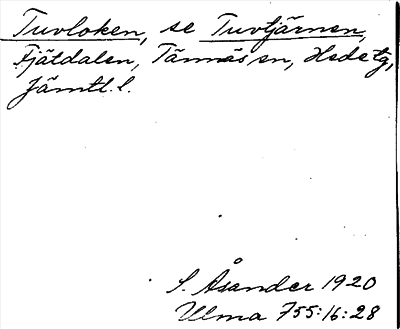 Tuvloken, se Tuvtjärnen,
Fjätdalen, Tännäs sn, Hede tg,
Jämtl. l.
S. Åsander 1920
Ulma 755:16:28